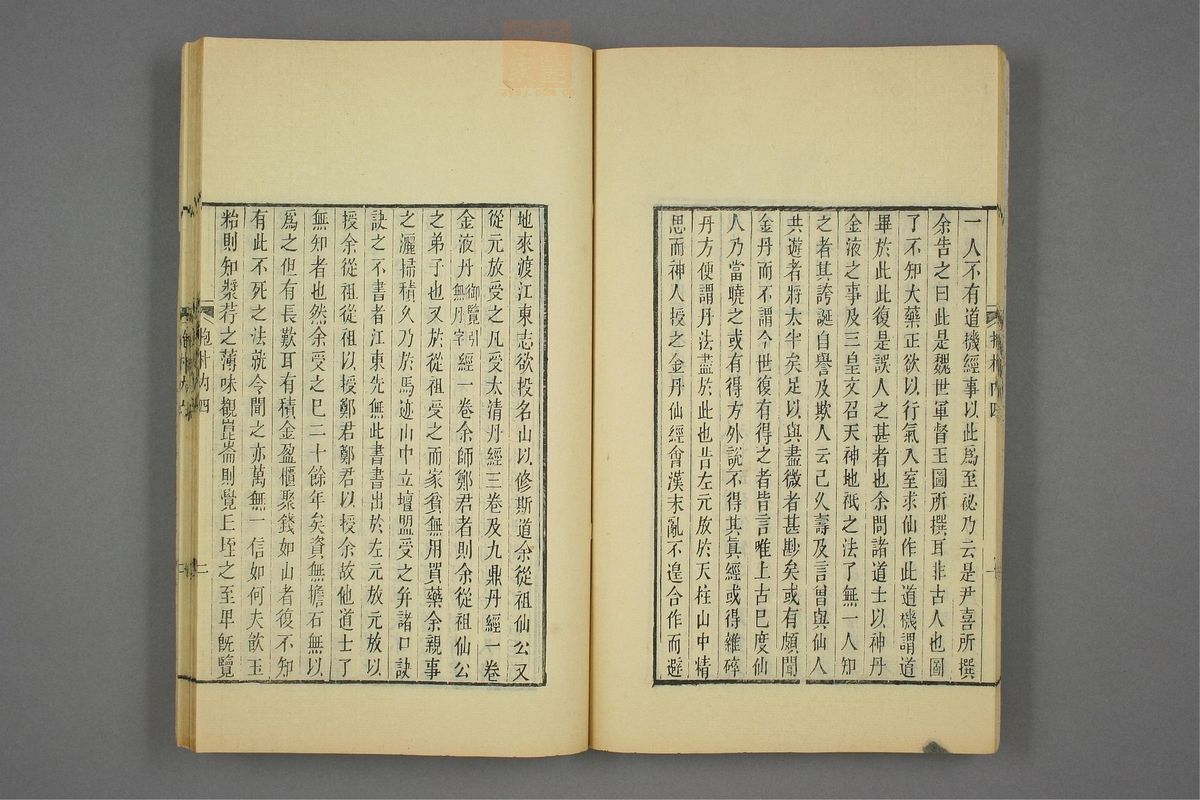 一人不有道機經事以此爲至祕乃云是尹喜所撰
余告之曰此是魏世軍督王圖所撰耳非古人也圖
了不知大藥正欲以行氣入室求仙作此道機謂道
畢於此此復是誤人之甚者也余問諸道士以神丹
金液之事及三皇文召天神地祇之法了無一人知
之者其誇誕自譽及欺人云己久壽及言曾與仙人
共遊者將太半矣足以與盡微者甚尠矣或有頗聞
金丹而不謂今世復有得之者皆言唯上古巳度仙
人乃當曉之或有得方外說不得其眞經或得雜碎
丹方便謂丹法盡於此也昔左元放於天柱山中精
思而神人授之金丹仙經會漢末亂不遑合作而避
地來渡江東志欲投名山以修斯道余從祖仙公又
從元放受之凡受太清丹經三卷及九鼎丹經一卷
金液丹御覽引無丹字經一卷余師鄭君者則余從祖仙公
之弟子也又於從祖受之而家貧無用買藥余親事
之灑掃積久乃於馬迹山中立壇盟受之并諸口訣
訣之不書者江東先無此書書出於左元放元放以
授余從祖從祖以授鄭君鄭君以授余故他道士了
無知者也然余受之巳二十餘年矣資無擔石無以
爲之但有長歎耳有積金盈櫃聚錢如山者復不知
有此不死之法就令聞之亦萬無一信如何夫飮玉
粭則知漿荇之薄味觀崑崙則覺丘垤之至卑旣覽
抱朴內四